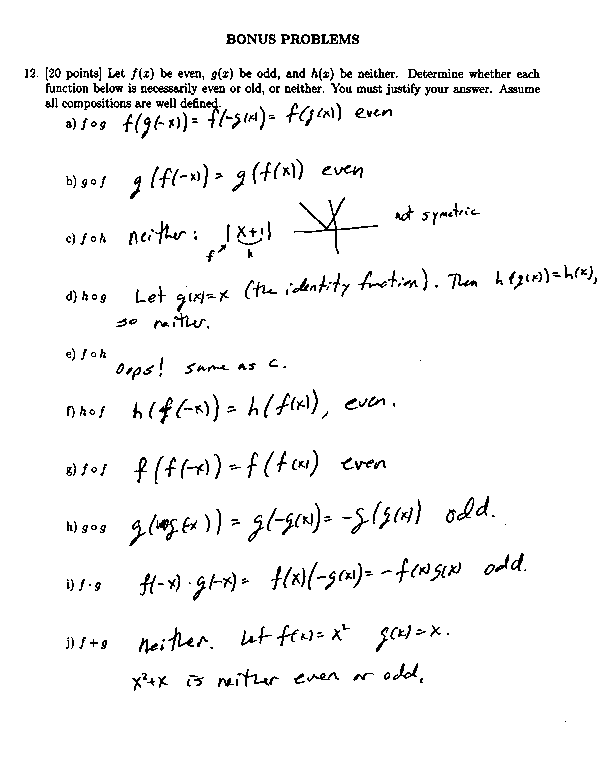 BONUS PROBLEMS
12. [20 points] Let f(x) be even, g(x) be odd, and h(x) be neither. Determine whether each
function below is necessarily even or old, or neither. You must justify your answer. Assume
all compositions are well defined.
a) f∘g f(g(-x)) = f(-g(x)) = f(g(x)) even
b) g∘f g(f(-x)) = g(f(x)) even
c) f∘h neither: |x+1| not symetric
f h
d) h∘g Let g(x)=x (the identity function). Then h(g(x))=h(x),
so neither.
e) f∘h Oops! same as c.
f) h∘f h(f(-x)) = h(f(x)), even.
g) f∘f f(f(-x)) = f(f(x)) even
h) g∘g g(g(-x)) = g(-g(x)) = -g(g(x)) odd.
i) f·g f(-x)·g(-x) = f(x)(-g(x)) = -f(x)g(x) odd.
j) f+g neither. Let f(x)=x² g(x)=x.
x²+x is neither even or odd.